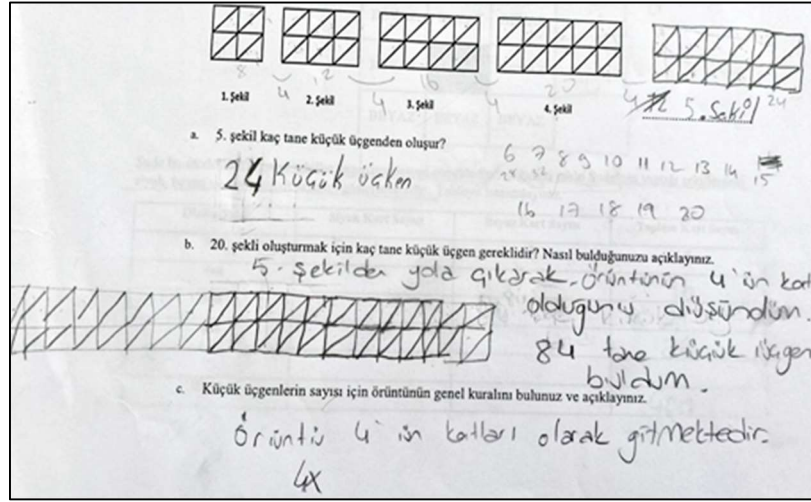 8 12 16 20
4 4 4 4 24
1. Şekil 2. Şekil 3. Şekil 4. Şekil 5. Şekil
a. 5. şekil kaç tane küçük üçgenden oluşur?
24 Küçük üçken
6 7 8 9 10 11 12 13 14 15
16 17 18 19 20
b. 20. şekli oluşturmak için kaç tane küçük üçgen gereklidir? Nasıl bulduğunuzu açıklayınız.
5. şekilden yola çıkarak örüntünün 4'ün kat
olduğunu düşündüm.
84 tane küçük üçgen
buldum.
c. Küçük üçgenlerin sayısı için örüntünün genel kuralını bulunuz ve açıklayınız.
Örüntü 4'ün katları olarak gitmektedir.
4x